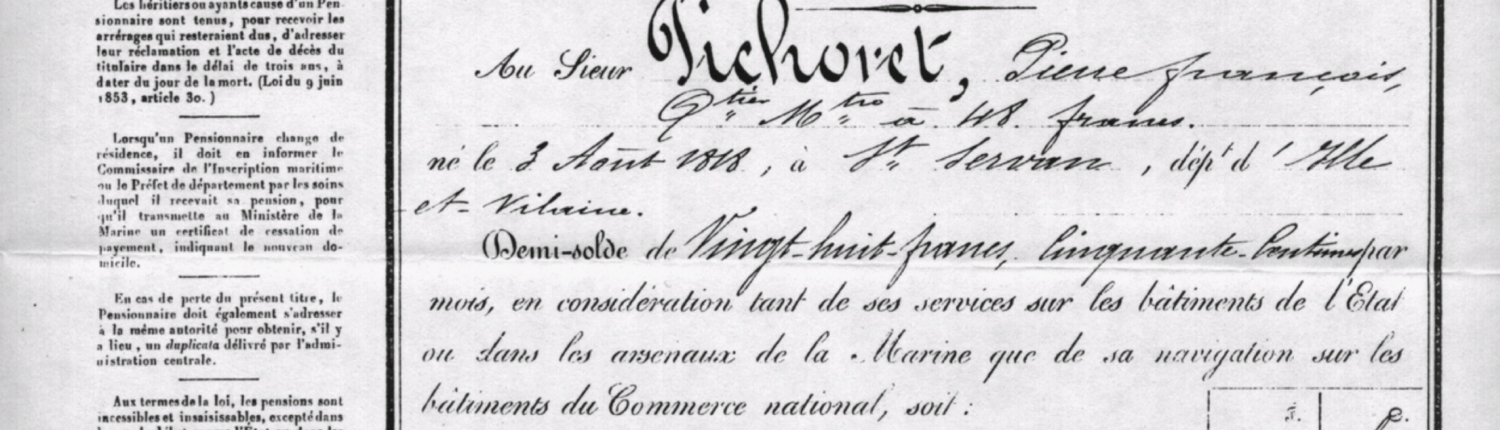 Les héritiers ou ayants cause d'un Pen-
sionnaire sont tenus, pour recevoir les
arrérages qui resteraient dus, d'adresser
leur réclamation et l'acte de décès du
titulaire dans le délai de trois ans, à
dater du jour de la mort. (Loi du 9 juin
1853, article 30.)
Lorsqu'un Pensionnaire change de
résidence, il doit en informer le
Commissaire de l'Inscription maritime
ou le Préfet de département par les soins
duquel il recevait sa pension, pour
qu'il transmette au Ministère de la
Marine un certificat de cessation de
payement, indiquant le nouveau do-
micile.
En cas de perte du présent titre, le
Pensionnaire doit également s'adresser
à la même autorité pour obtenir, s'il y
a lieu, un duplicata délivré par l'admi-
nistration centrale.
Aux termes de la loi, les pensions sont
incessibles et insaisissables, excepté dans
Au Sieur Pichoret, Pierre françois,
Qtier Mtre à 48 francs.
né le 3 Août 1818, à St Servan, dépt d'Ille
et-Vilaine.
Demi-solde de Vingt-huit-francs, Cinquante-Centimes par
mois, en considération tant de ses services sur les bâtiments de l'État
ou dans les arsenaux de la Marine que de sa navigation sur les
bâtiments du Commerce national, soit :